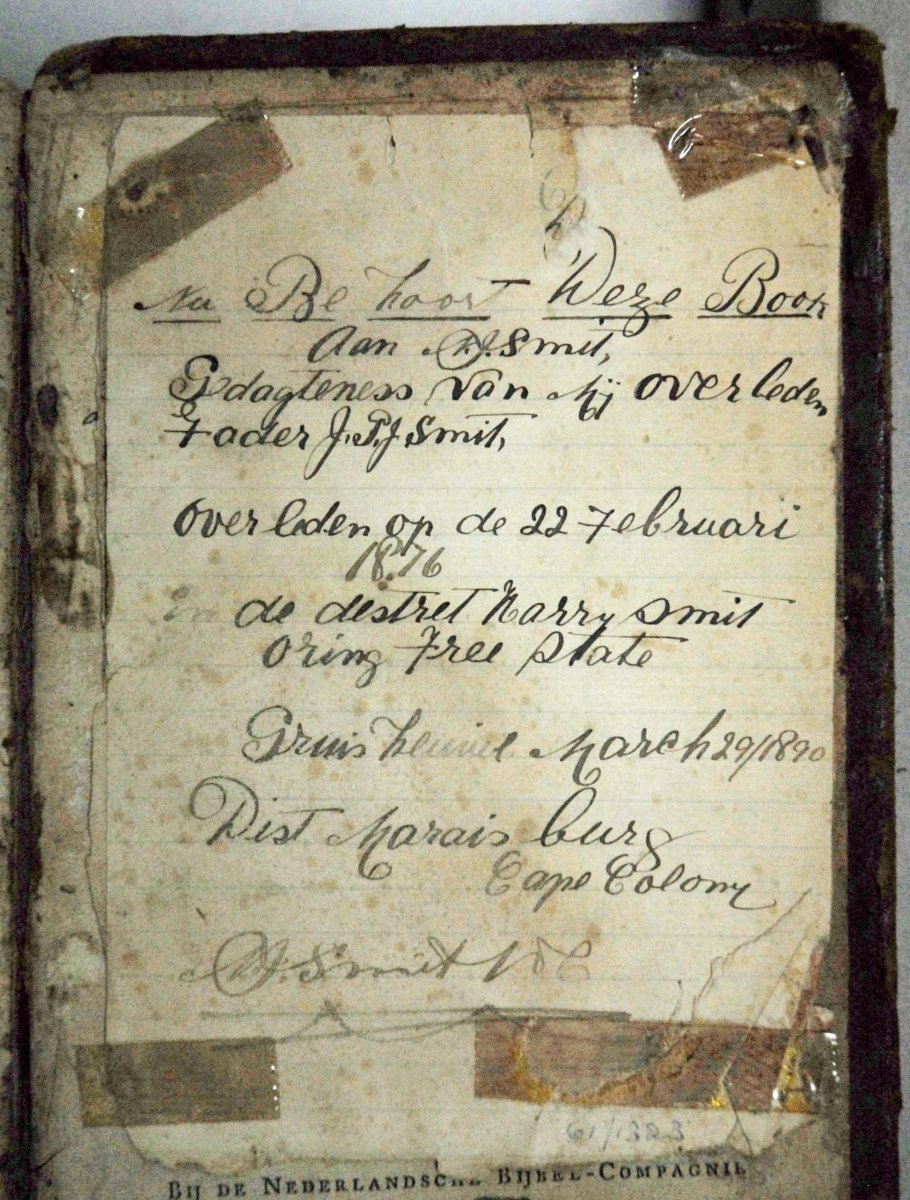 Nu Be hoort Deze Book
Aan P.J. Smit,
Gedagteness van Mij overleden
Fader J.P.J Smit,
overleden op de 22 Februari
1876
En de destret Harry Smit
Oring Free State
March 29/1890
Dist Maraisburg
Cape Colony
J. Smit
61/1323
BIJ DE NEDERLANDSCHE BIJBEL-COMPAGNIE